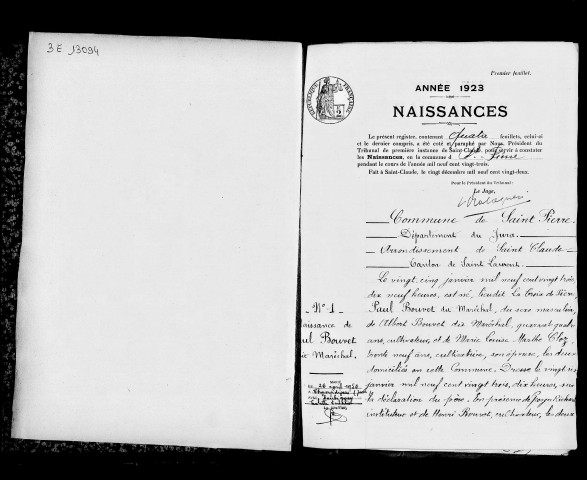 3E 13094
Premier feuillet.
ANNÉE 1923
RÉPUBLIQUE FRANÇAISE
NAISSANCES
Le présent registre, contenant Quatre feuillets, celui-ci
et le dernier compris, a été coté et paraphé par Nous, Président du
Tribunal de première instance de Saint-Claude, pour servir à constater
les Naissances, en la commune d St-Pierre
pendant le cours de l'année mil neuf cent vingt-trois.
Fait à Saint-Claude, le vingt décembre mil neuf cent vingt-deux.
Pour le Président du Tribunal:
Le Juge,
Commune de Saint Pierre
Département du Jura
Arrondissement de Saint Claude
Canton de Saint Laurent
Le vingt cinq janvier mil neuf cent vingt trois,
dix neuf heures, est né, lieudit La Croix de
Paul Bouvet du Maréchal, du sexe masculin,
de Albert Bouvet dit Maréchal, quarante
ans, cultivateur, et de Marie Louise Marthe
trente neuf ans, cultivatrice, son épouse, les deux
domiciliés en cette Commune. Dressé le vingt
janvier mil neuf cent vingt trois, dix heures, sur
la déclaration du père. En présence de
instituteur et de Henri Bouvet, cultivateur, les deux
N° 1
aissance de
ul Bouvet
it Maréchal.